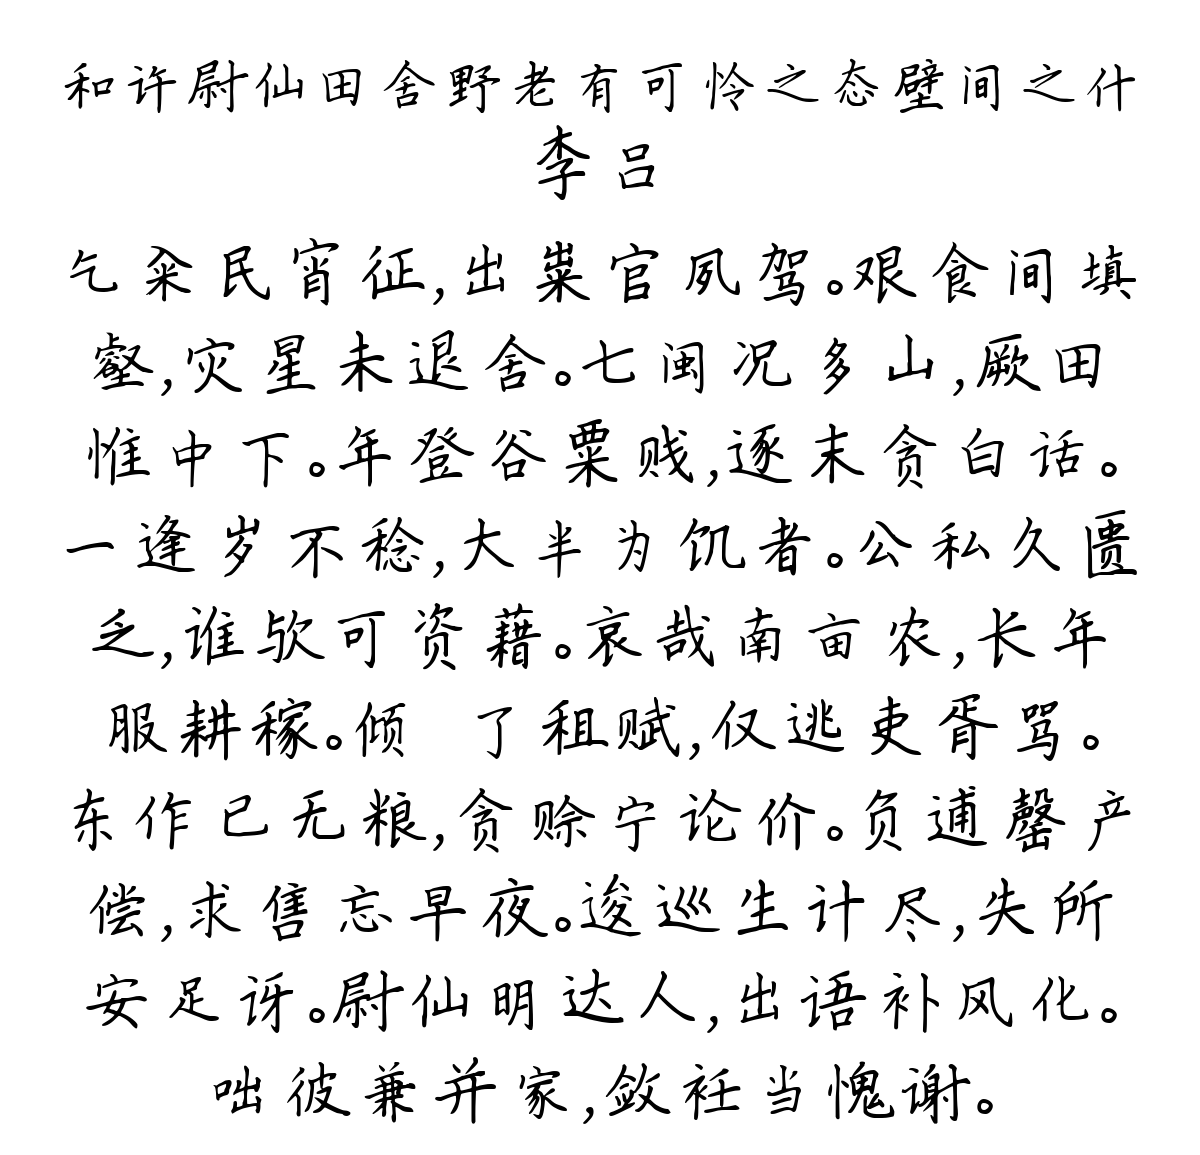 和许尉仙田舍野老有可怜之态壁间之什
李吕
乞籴民宵征,出粜官夙驾。艰食间填
壑,灾星未退舍。七闽况多山,厥田
惟中下。年登谷粟贱,逐末贪白话。
一逢岁不稔,大半为饥者。公私久匮
乏,谁欤可资藉。哀哉南亩农,长年
服耕稼。倾 了租赋,仅逃吏胥骂。
东作已无粮,贪赊宁论价。负逋罄产
偿,求售忘早夜。逡巡生计尽,失所
安足讶。尉仙明达人,出语补风化。
咄彼兼并家,敛衽当愧谢。